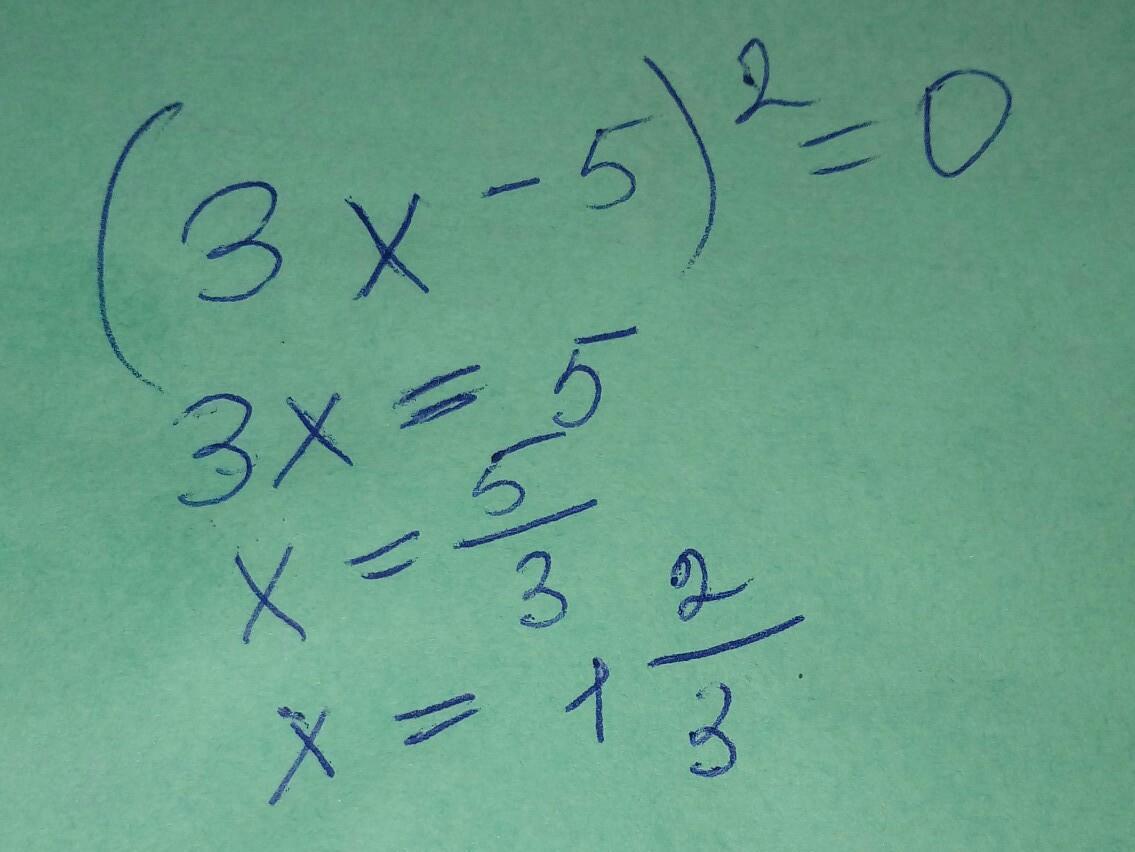 (3x - 5)² = 0
3x = 5
x = 5/3
x = 1 2/3